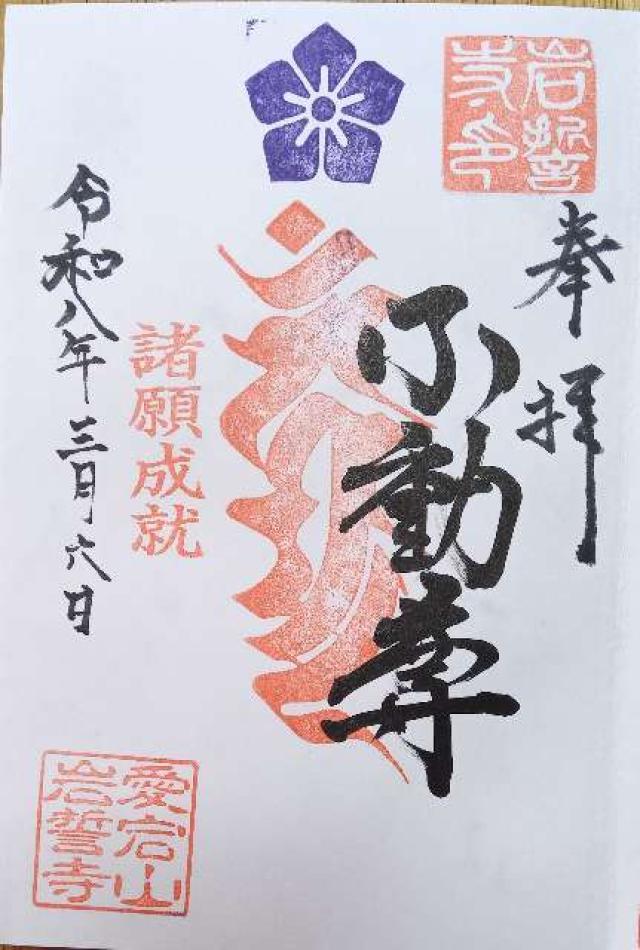 岩誓
寺印
奉拝
不動尊
諸願成就
令和八年三月六日
愛宕山
岩誓寺